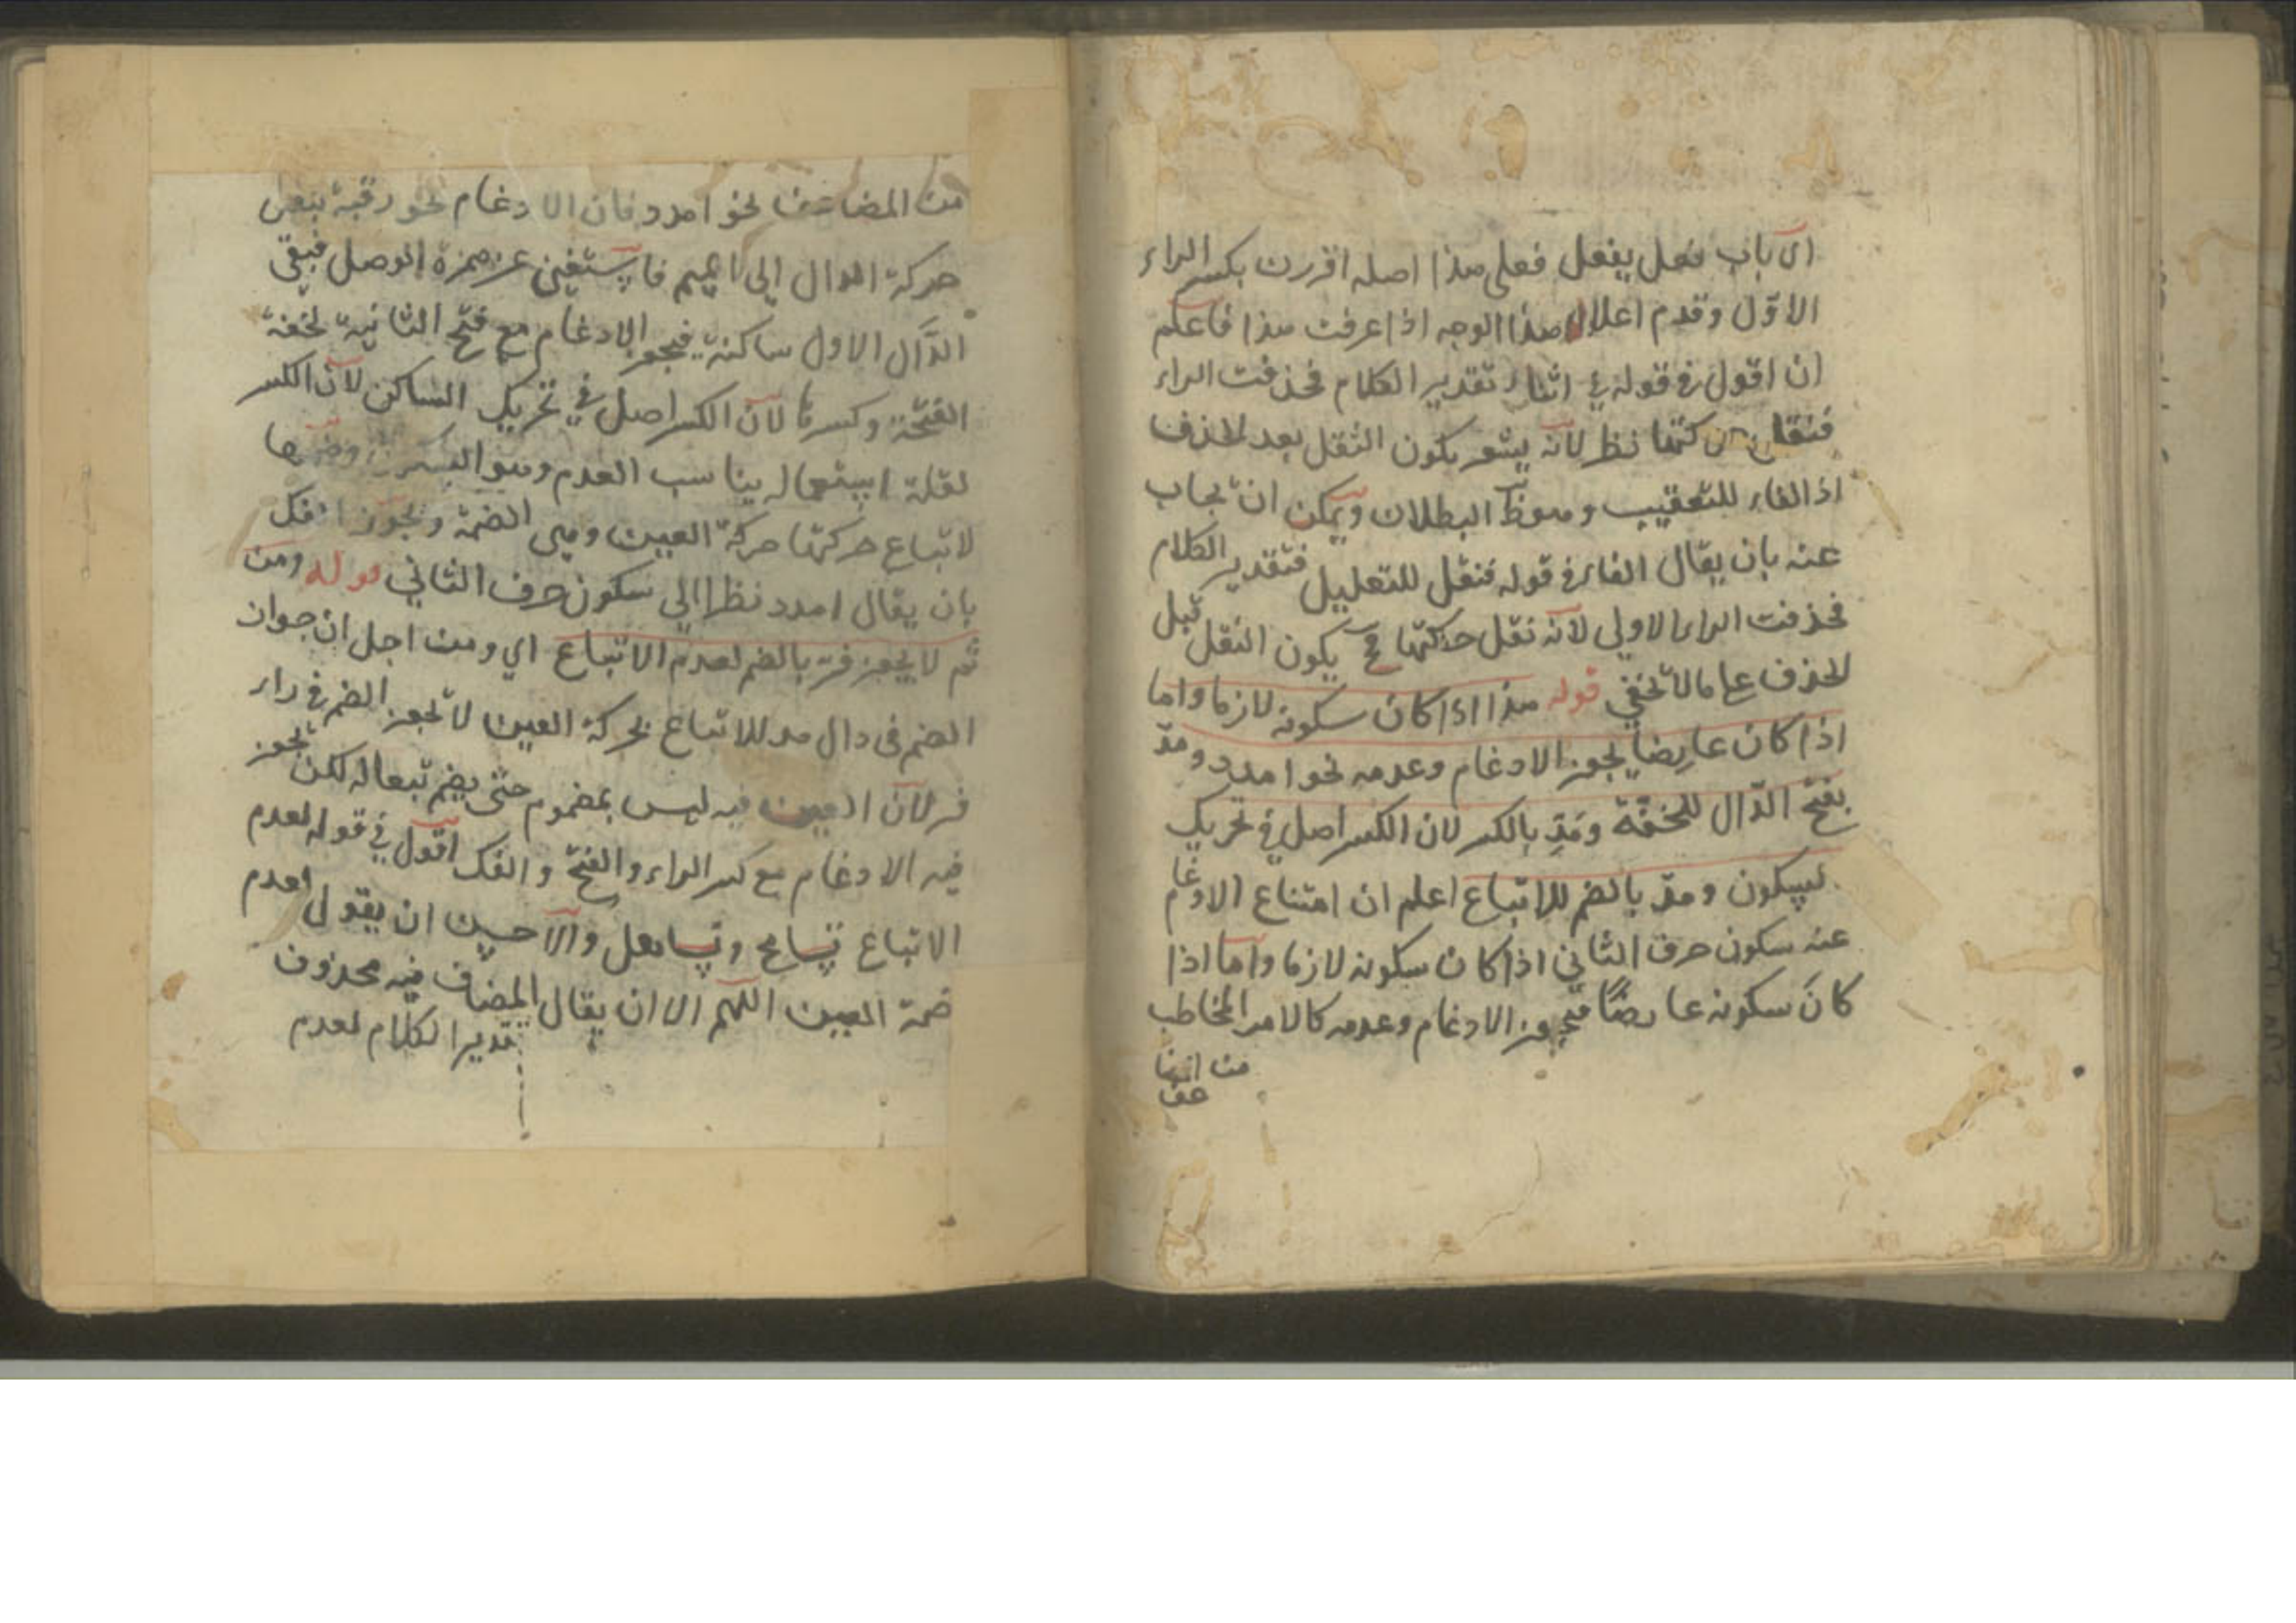 اي باب فعل يفعل فعلى هذا اصله اقررن بكسر الراء
الاوّل وقدم اعلال هذا الوجه اذا عرفت هذا فاعلم
ان اقول في قوله في اثناء تقدير الكلام فحذفت الراء
حركتها نظر لانه يشعر بكون النقل بعد الحذف
اذ الفاء للتعقيب وهو ظ البطلان ويمكن ان يجاب
عنه بان يقال الفاء في قوله فنقل للتعليل فتقدير الكلام
فحذفت الراء الاولي لانه نقل حركتها ح يكون النقل قبل
الحذف علي ما لا يخفي قوله هذا اذا كان سكونه لازما واما
اذا كان عارضا يجوز الادغام وعدمه نحو امدد ومدّ
بفتح الدّال للخفّة ومدِّ بالكسر لان الكسر اصل في تحريك
السكون ومدّ بالضم للاتباع اعلم ان امتناع الادغام
عنه سكون حرف الثاني اذا كان سكونه لازما واما اذا
كانَ سكونه عارضًا فيجوز الادغام وعدمه كالامر المخاطب
من المضاعف
من المضاعف نحو امدد فان الادغام نحو رقبة
حركة الدال الى الميم فاستغنى عن همزة الوصل فبقي
الدَّال الاول ساكنة فيجوز الادغام مع فتح الثانية لخفة
الفتحة وكسرها لان الكسر اصل في تحريك الساكن لان الكسر
لقلة استعماله يناسب العدم وهو السكون وضمها
لاتباع حركتها حركة العين وهي الضمة ويجوز الفك
بان يقال امدد نظرا الي سكون حرف الثاني قوله ومن
ثم لا يجوز فرّ بالضم لعدم الاتباع اي ومن اجل ان جواز
الضم في دال مد للاتباع بحركة العين لا يجوز الضم في راء
فر لان العين فيه ليس بمضموم حتى يضم تبعا له لكن يجوز
فيه الادغام مع كسر الراء والفتح والفك اقول في قوله لعدم
الاتباع تسامح وتساهل والاحسن ان يقول لعدم
ضمة العين اللهم الا ان يقال المضاف فيه محذوف
تقدير الكلام لعدم